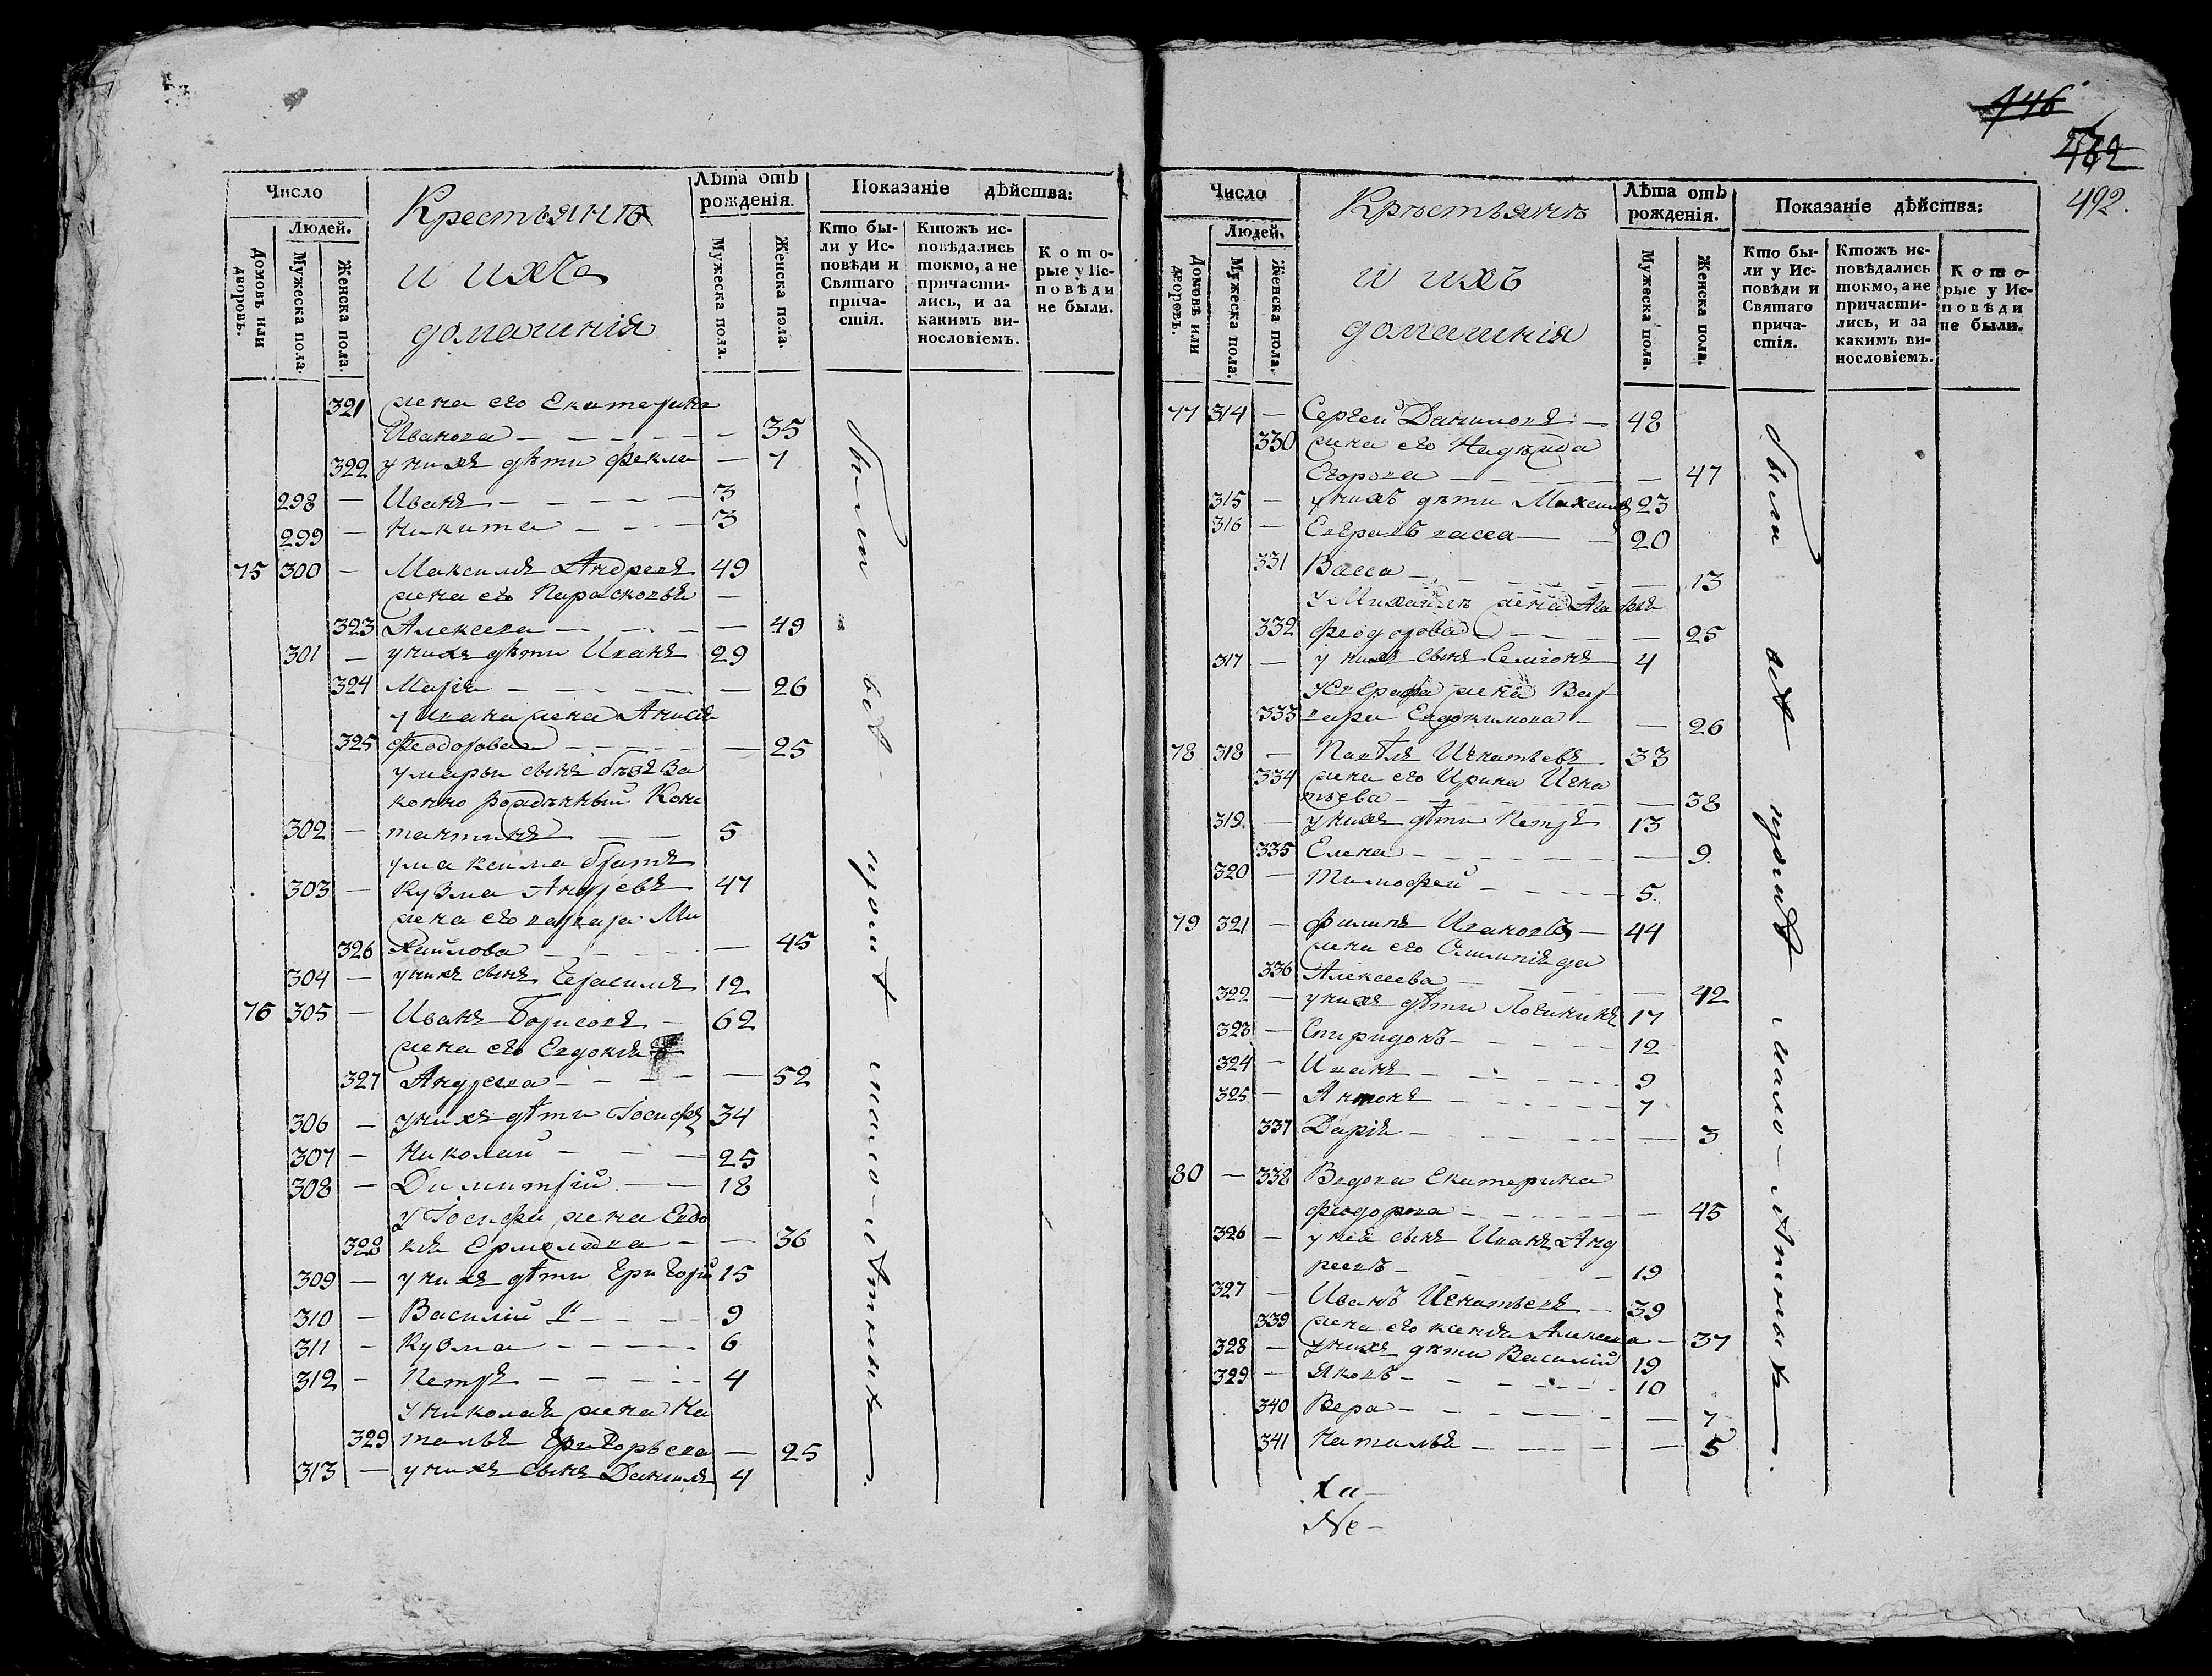 Число
Людей.
Домовъ или дворовъ.
Мужеска пола.
Женска пола.
Крестьянѣ
и ихъ
домашнія
Лѣта отъ рожденія.
Мужеска пола.
Женска пола.
Показаніе дѣйства:
Кто бы-
ли у Ис-
повѣди и
Святаго
прича-
стія.
Ктожъ ис-
повѣдались
токмо, а не
причасти-
лись, и за
какимъ ви-
нословіемъ.
Кото-
рые у Ис-
повѣди
не были.
321 жена его Екатерина
Иванова - - - - - - 35
322 у нихъ дѣти Фекла - 7
298 - Иванъ - - - - - 3
299 - Никита - - - - 3
75 300 - Максимъ Андреевъ 49
жена его Парасковья -
323 Алексеева - - - - - 49
301 - у нихъ дѣти Иванъ 29
324 Марія - - - - - - 26
у Ивана жена Анисья
325 Феодорова - - - - - 25
у Марьи сынъ безъ за
конно рожденный Конс
302 - тантинъ - - 5
у Максима братъ
303 - Кузма Андреевъ 47
жена его варвара Ми
326 хайлова - - - - - 45
304 - у нихъ сынъ Герасимъ 12
76 305 - Иванъ Борисовъ - 62
жена его Евдокия
327 Андреева - - - - - 52
306 - у нихъ дѣти Іосифъ 34
307 - Николай - - - 25
308 - Димитрій - - 18
у Іосифа жена Евдо
328 кія Ермолаева - - 36
309 - у нихъ дѣти Григорій 15
310 - Василій - - - 9
311 - Кузма - - - - - 6
312 - Петръ - - - - - 4
у Николая жена На
329 талья Григорьева - 25
313 - у нихъ сынъ Данилъ 4
были всѣ
446
492.
Число
Людей.
Домовъ или дворовъ.
Мужеска пола.
Женска пола.
Крѣстьянѣ
и ихъ
домашнія
Лѣта отъ рожденія.
Мужеска пола.
Женска пола.
Показаніе дѣйства:
Кто бы-
ли у Ис-
повѣди и
Святаго
прича-
стія.
Ктожъ ис-
повѣдались
токмо, а не
причасти-
лись, и за
какимъ ви-
нословіемъ.
Кото-
рые у Ис-
повѣди
не были.
77 314 - Сергей Даниловъ - 48
330 жена его Надѣжда
Егорова - - - - - 47
315 - у нихъ дѣти 23
316 - - 20
331 Васса - - - - - 13
у Михаилы жена Агафья
332 Феодорова - - - - 25
317 - у нихъ сынъ Семіонъ 4
жена Вар
333 вара Евдокимова - - 26
78 318 - Павѣлъ Игнатьевъ 33
334 жена его Ирина Игна
тьева - - - - - 38
319 - у нихъ дѣти Петръ 13
335 Елена - - - - - 9.
320 - Тимофей - - - - 5.
79 321 - Филипъ Ивановъ - 44
жена его Олимпіяда
336 Алексеева - - - 42
322 - у нихъ дѣти Логинъ 17
323 - Спиридонъ - - - - 12
324 - Иванъ - - - - - 9
325 - Антонъ - - - - - 7
337 Дарія - - - - - 3
80 - 338 Вдова Екатерина
Феодорова - - - - - 45
326 - у нея сынъ Иванъ Анд
реевъ - - - 19
327 - Иванъ Игнатьевъ - 39
339 жена его Ксенія Алексеева - 37
328 - у нихъ дѣти Василій 19
329 - Яковъ - - - - - 10
340 Вера - - - - - - 7
341 Наталья - - - - - 5
были всѣ
Ха -
Не -